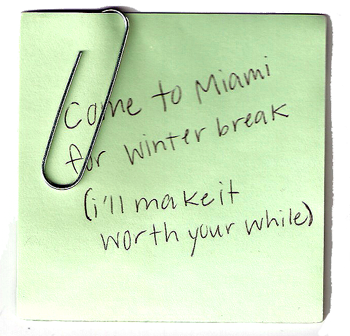 Come to Miami
for winter break
(i'll make it
worth your while)